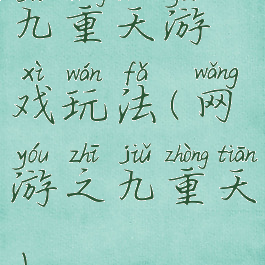 九重天游
xì wán fǎ wǎng
戏玩法(网
yóu zhī jiǔ zhòng tiān
游之九重天